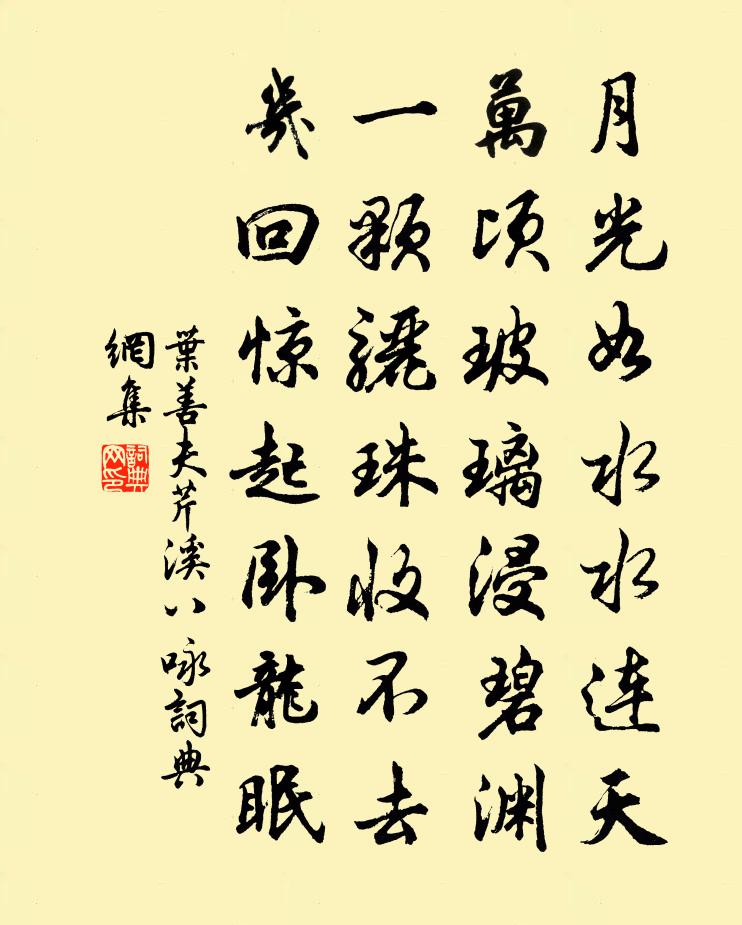 月光如水水连天
萬頃玻璃浸碧渊
一顆骊珠收不去
幾回惊起卧龍眠
葉善夫芹溪八咏詞典
網集
詞典网印